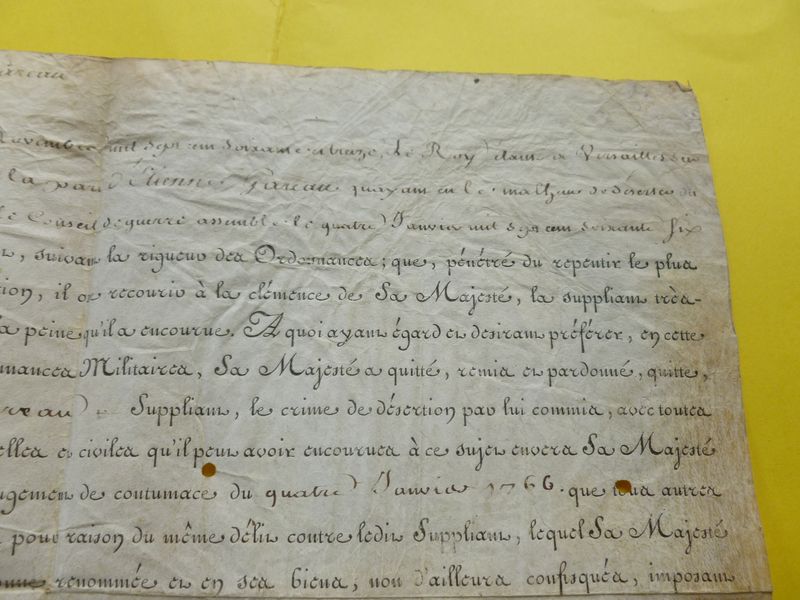 Gareau
Novembre mil sept cent soixante et treize, le Roy etant a Versailles sur
la part d'Etienne Gareau qu'ayant eu le malheur de déserter du
le Conseil de guerre assemblé le quatre Janvier mil sept cent soixante six
suivant la rigueur des Ordonnances ; que, pénétré du repentir le plus
ion, il ose recourir à la clémence de Sa Majesté, la suppliant très-
la peine qu'il a encourue. A quoi ayant égard et desirant préférer, en cette
onnances Militaires, Sa Majesté a quitté, remis et pardonné, quitte,
reau Suppliant, le crime de désertion par lui commis, avec toutes
elles et civiles qu'il peut avoir encourues à ce sujet envers Sa Majesté
ugement de contumace du quatre Janvier 1766. que tous autres
pour raison du même délit contre ledit Suppliant, lequel Sa Majesté
renommée et en ses biens, non d'ailleurs confisqués, imposant